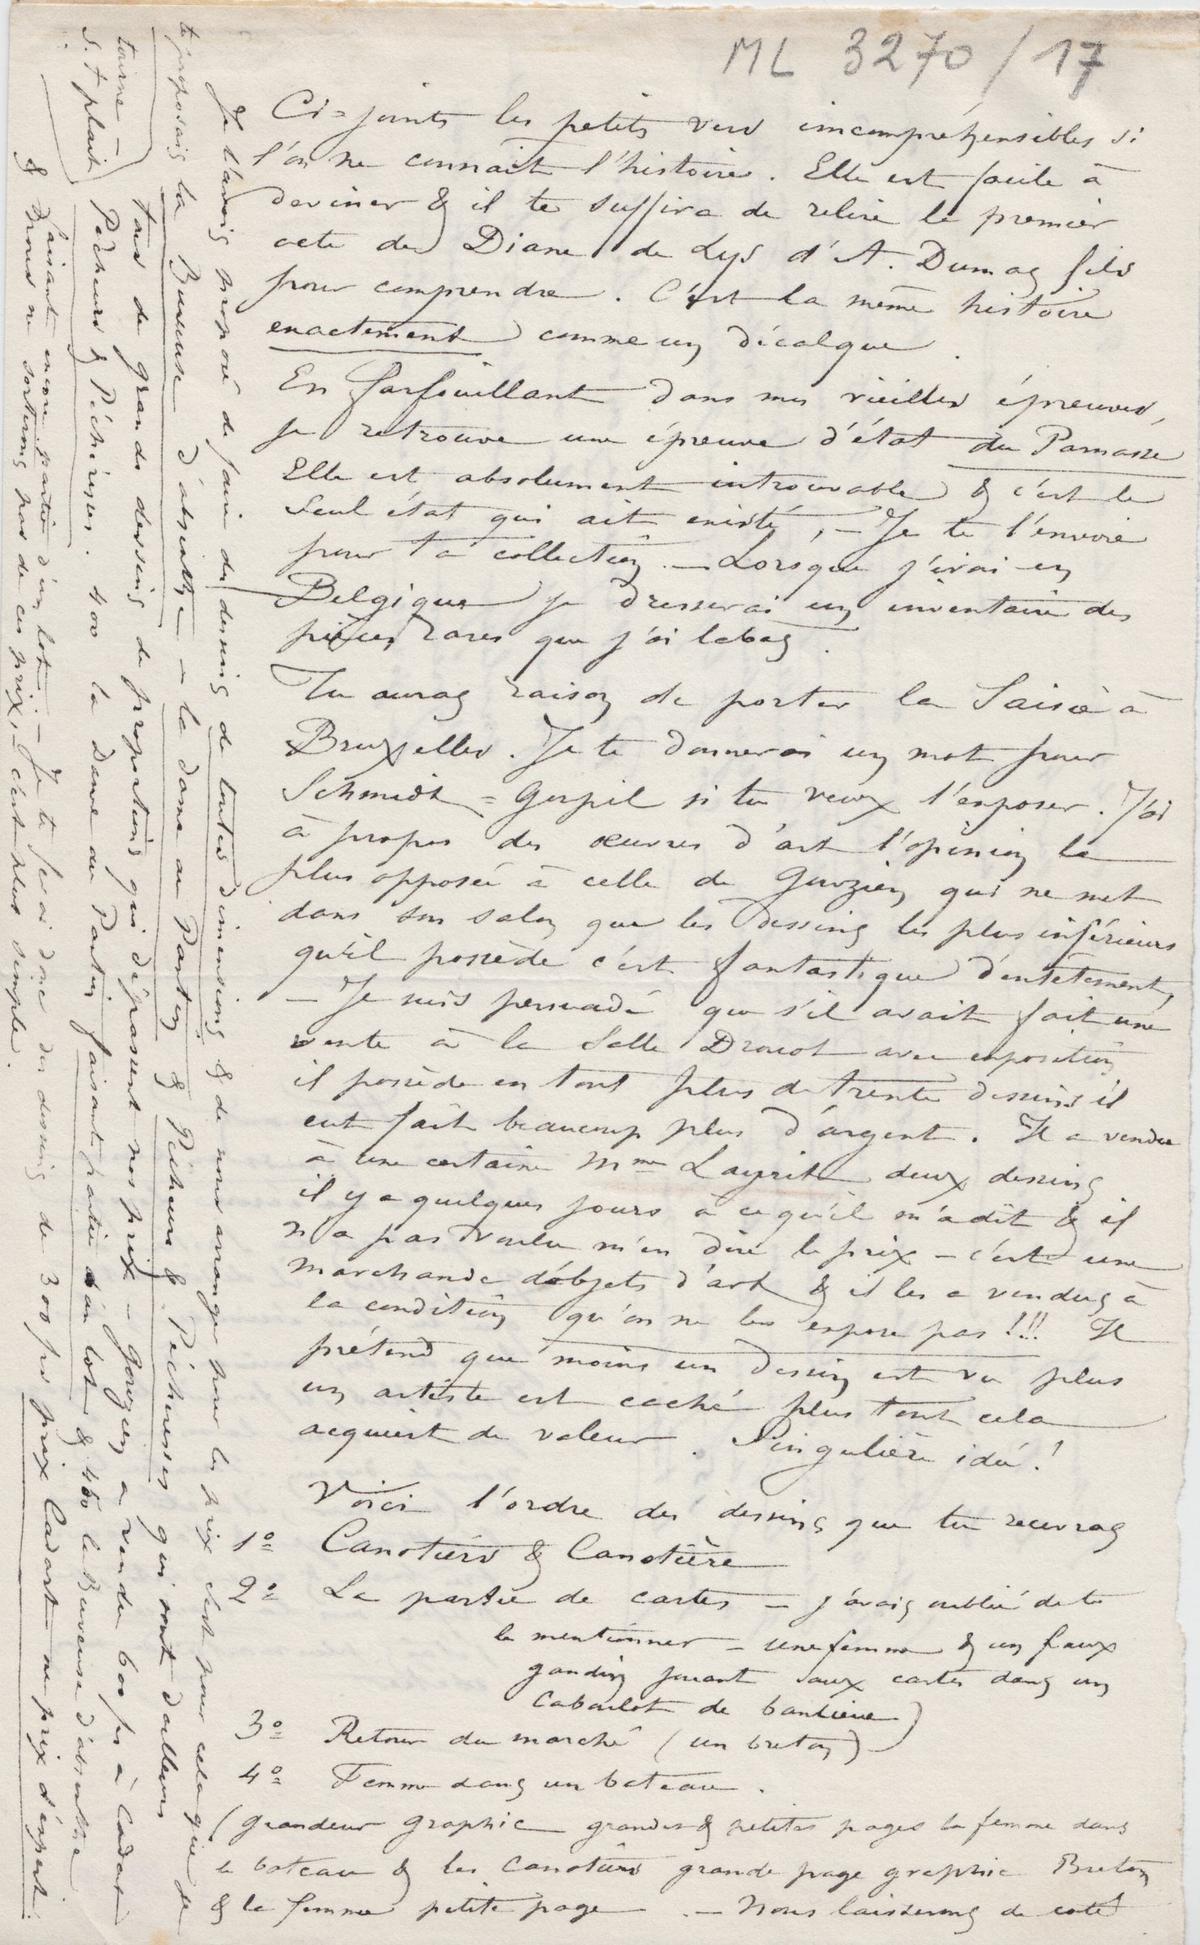 ML 3270/17
Ci-joints les petits vers incompréhensibles si
l'on ne connaît l'histoire. Elle est facile à
deviner & il te suffira de relire le premier
acte de Diane de Lys d'A. Dumas fils
pour comprendre. C'est la même histoire
exactement comme un décalque.
En farfouillant dans mes vieilles épreuves,
je retrouve une épreuve d'état du Parnasse
Elle est absolument introuvable & c'est le
seul état qui ait existé, – Je te l'envoie
pour ta collection. – Lorsque j'irai en
Belgique je dresserai un inventaire des
pièces rares que j'ai là bas.
Tu auras raison de porter la Saisie à
Bruxelles. Je te donnerai un mot pour
Schmidt = Goupil si tu veux l'exposer. J'ai
à propos des œuvres d'art l'opinion la
plus opposée à celle de Gouzien qui ne met
dans son salon que les dessins les plus inférieurs
qu'il possède c'est fantastique d'entêtement,
– Je suis persuadé que s'il avait fait une
vente à la Salle Drouot avec exposition
il possède en tout plus de trente dessins il
eut fait beaucoup plus d'argent. Il a vendu
à une certaine Mme Layrit deux dessins
il y a quelques jours à ce qu'il m'a dit & il
n'a pas voulu m'en dire le prix – c'est une
marchande d'objets d'art & il les a vendus à
la condition qu'on ne les expose pas!!! Il
prétend que moins un dessin est vu plus
un artiste est caché plus tout cela
acquiert de valeur. Singulière idée!
Voici l'ordre des dessins que tu recevras
1º Canotiers & Canotière
2º La partie de cartes – j'avais oublié de te
la mentionner – une femme & un faux
gandin jouant aux cartes dans un
caboulot de banlieue)
3º Retour du marché (un breton)
4º Femme dans un bateau.
(grandeur graphic grandes & petites pages la femme dans
le bateau & les canotiers grande page graphic Breton
& la femme petite page. – Nous laisserons de coté
Je t'avais proposé de faire des dessins de toutes dimensions & de nous arranger pour les prix c'est pour cela que je
te proposais la Buveuse d'absinthe – la dame au Pantin & Pêcheurs & Pêcheuses qui sont d'ailleurs
tous de grands dessins de proportions qui dépassent nos prix – Gouzien a vendu 600 frs à Cadart
Pêcheurs & Pêcheuses. 400 la Dame au Pantin faisant partie d'un lot & 450 la Buveuse d'absinthe
faisant encore partie d'un lot – Je te ferai donc des dessins de 300 frs prix Cadart ou prix d'expert.
& nous ne sortirons pas de ces prix, c'est plus simple.
tourne –
s. t. plait